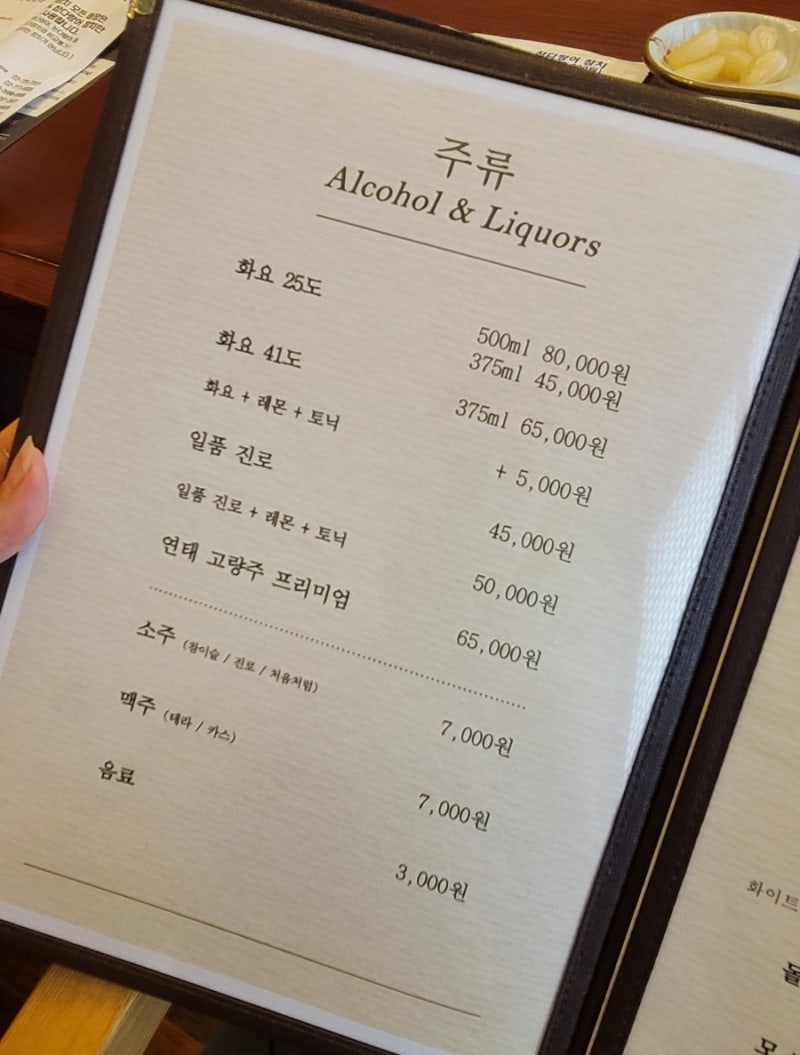 주류
Alcohol & Liquors
화요 25도
500ml 80,000원
375ml 45,000원
화요 41도
375ml 65,000원
화요 + 레몬 + 토닉
+ 5,000원
일품 진로
45,000원
일품 진로 + 레몬 + 토닉
50,000원
연태 고량주 프리미엄
65,000원
소주 (참이슬 / 진로 / 처음처럼)
7,000원
맥주 (테라 / 카스)
7,000원
음료
3,000원
화이트